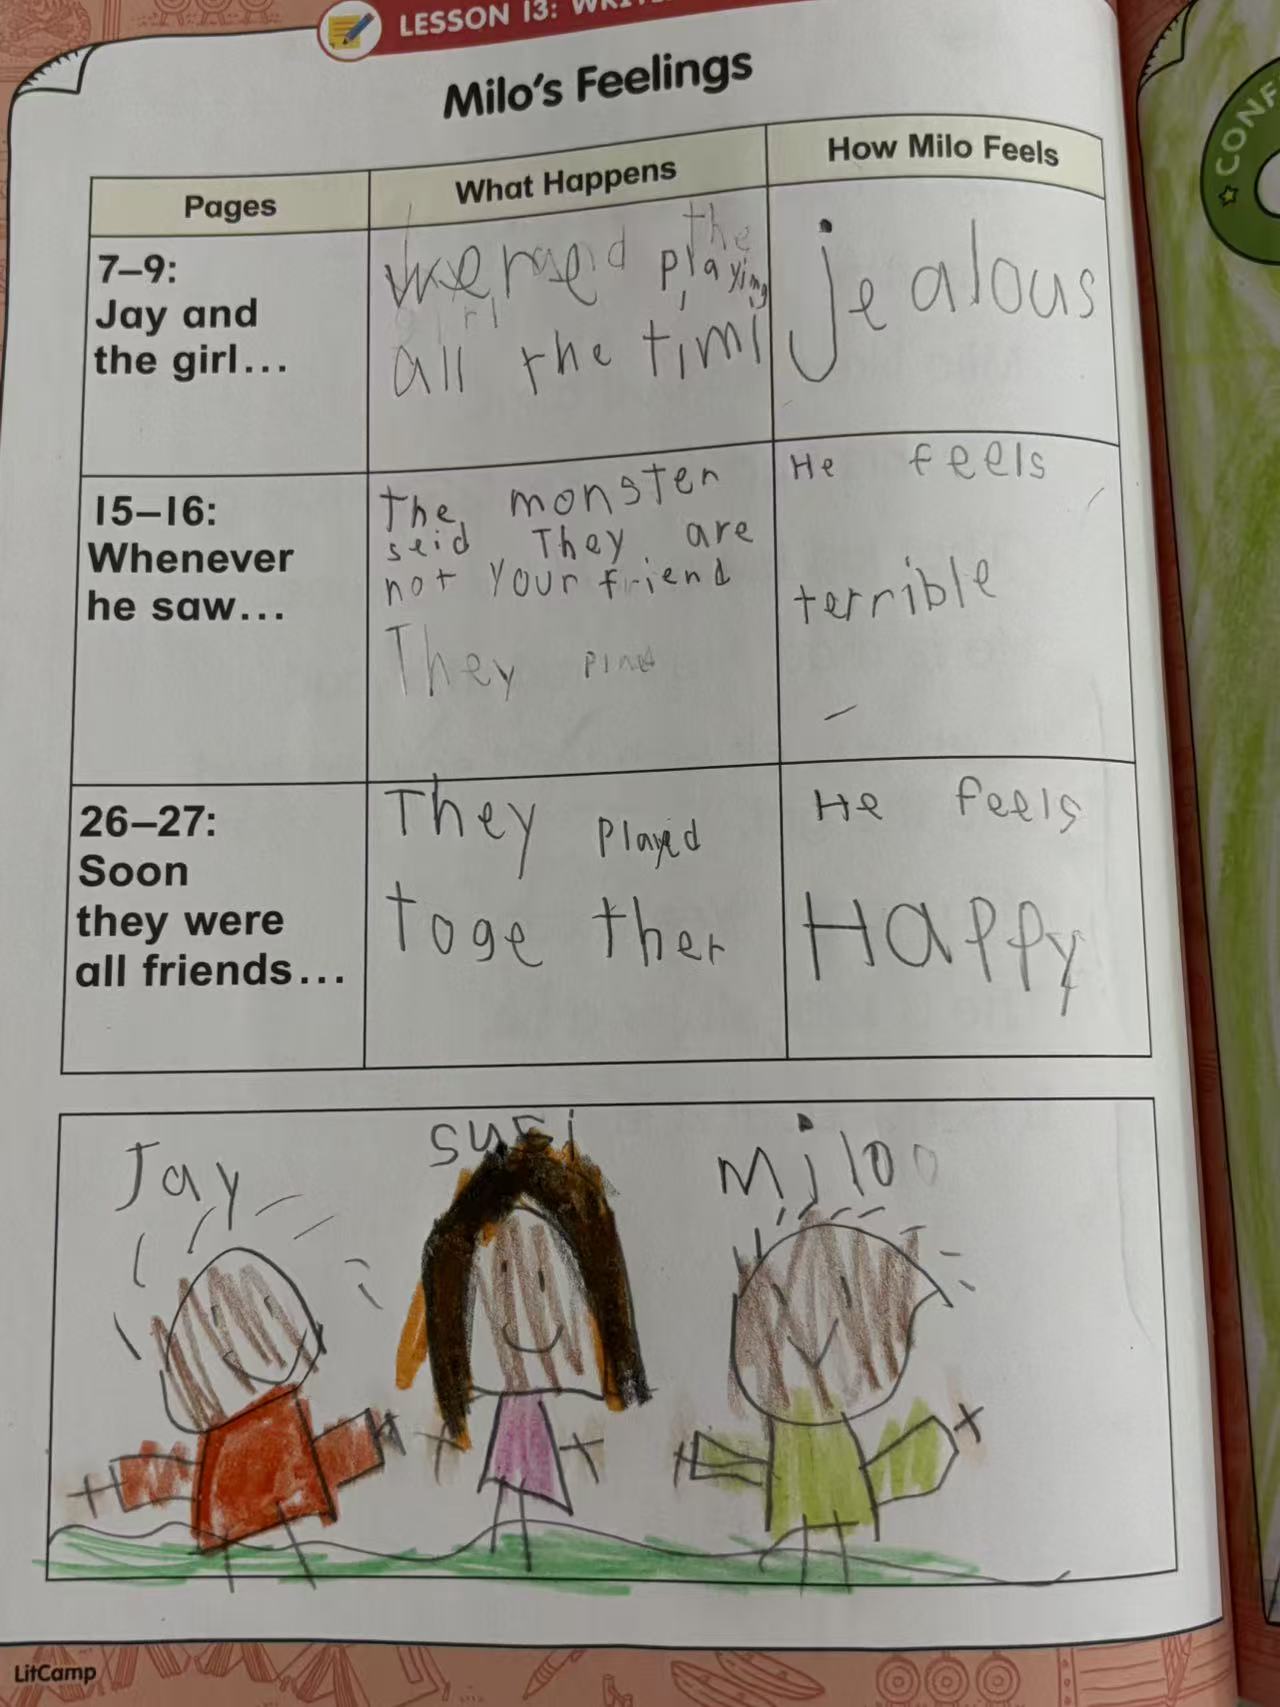 LESSON 13:
Milo's Feelings
Pages
What Happens
How Milo Feels
7–9:
Jay and
the girl...
the
playing
all the timi
jealous
15–16:
Whenever
he saw...
The monster
seid They are
not Your friend
They
He feels
terrible
26–27:
Soon
they were
all friends...
They Played
toge ther
He feels
Happy
Jay
suri
Miloo
LitCamp
CONF